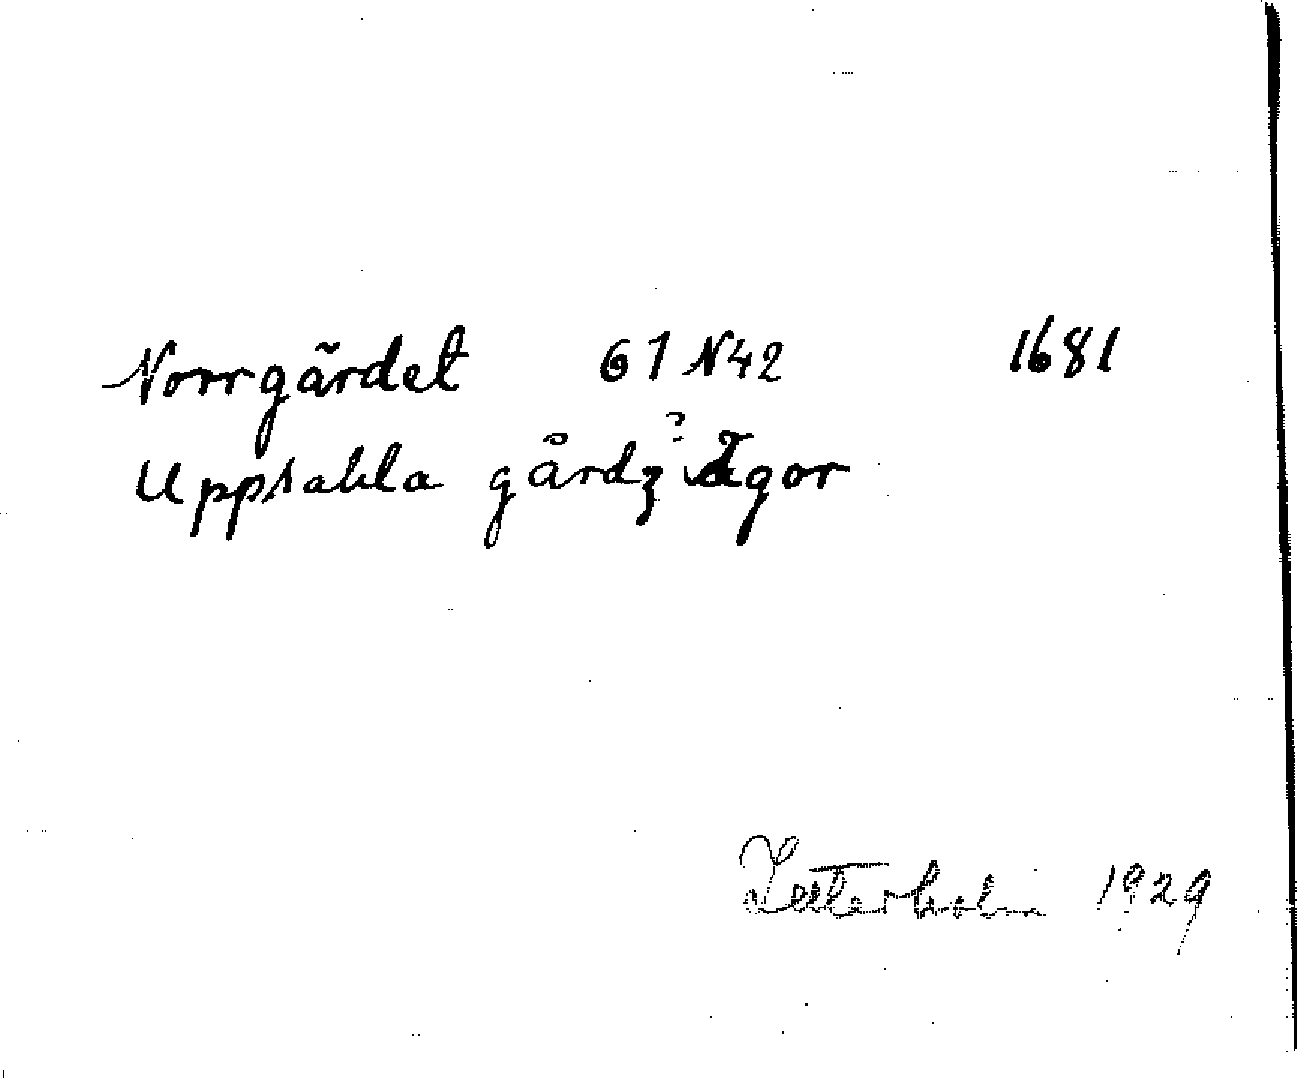 Norrgärdet 61 N42 1681
Uppsahla gårdz? Ägor
Zetterholm 1929